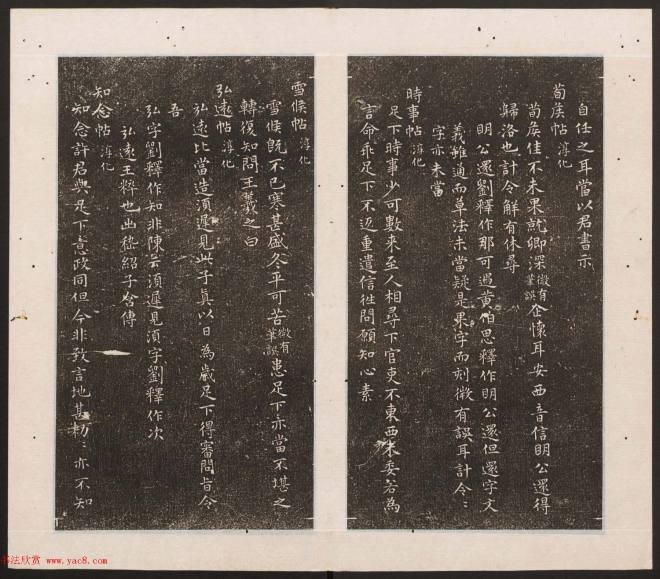 自任之耳當以君書示
荀侯帖 淳化
荀侯佳不未果就卿深微有筆誤企懷耳安西音信明公還得
歸洛也計令解有休尋
明公還劉釋作那可過黄伯思釋作明公還但還字文
義雖通而草法未當疑是果字而刻微有誤耳計令二
字亦未當
時事帖 淳化
足下時事少可數來至人相尋下官吏不東西未委若為
言命乖足下不返重遣信往問願知心素
雪候帖 淳化
雪候既不已寒甚盛冬平可苦微有筆誤患足下亦當不堪之
轉復知問王羲之白
弘遠帖 淳化
弘遠比當造須遲見此子真以日為歲足下得審問旨令
吾
弘字劉釋作知非陳云須遲見須字劉釋作次
弘遠王粹也出嵇紹子含傳
知念帖 淳化
知念許君與足下意政同但今非致言地甚勑 亦不知
书法欣赏 www.yac8.com